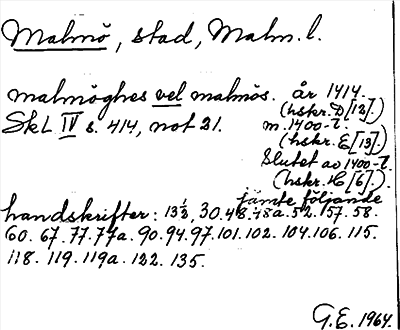 Malmö, stad, Malm. l.
malmöghes vel malmös. år 1414.
(hskr. D [12].)
SkL IV s. 414, not 21. m. 1400-t.
(hskr. E [13].)
Slutet av 1400-t.
(hskr. H [6].).
jämte följande
handskrifter: 13½, 30. 48. 48a. 52. 157. 58.
60. 67. 77. 77a. 90. 94. 97. 101. 102. 104. 106. 115.
118. 119. 119a. 122. 135.
G.E. 1964.